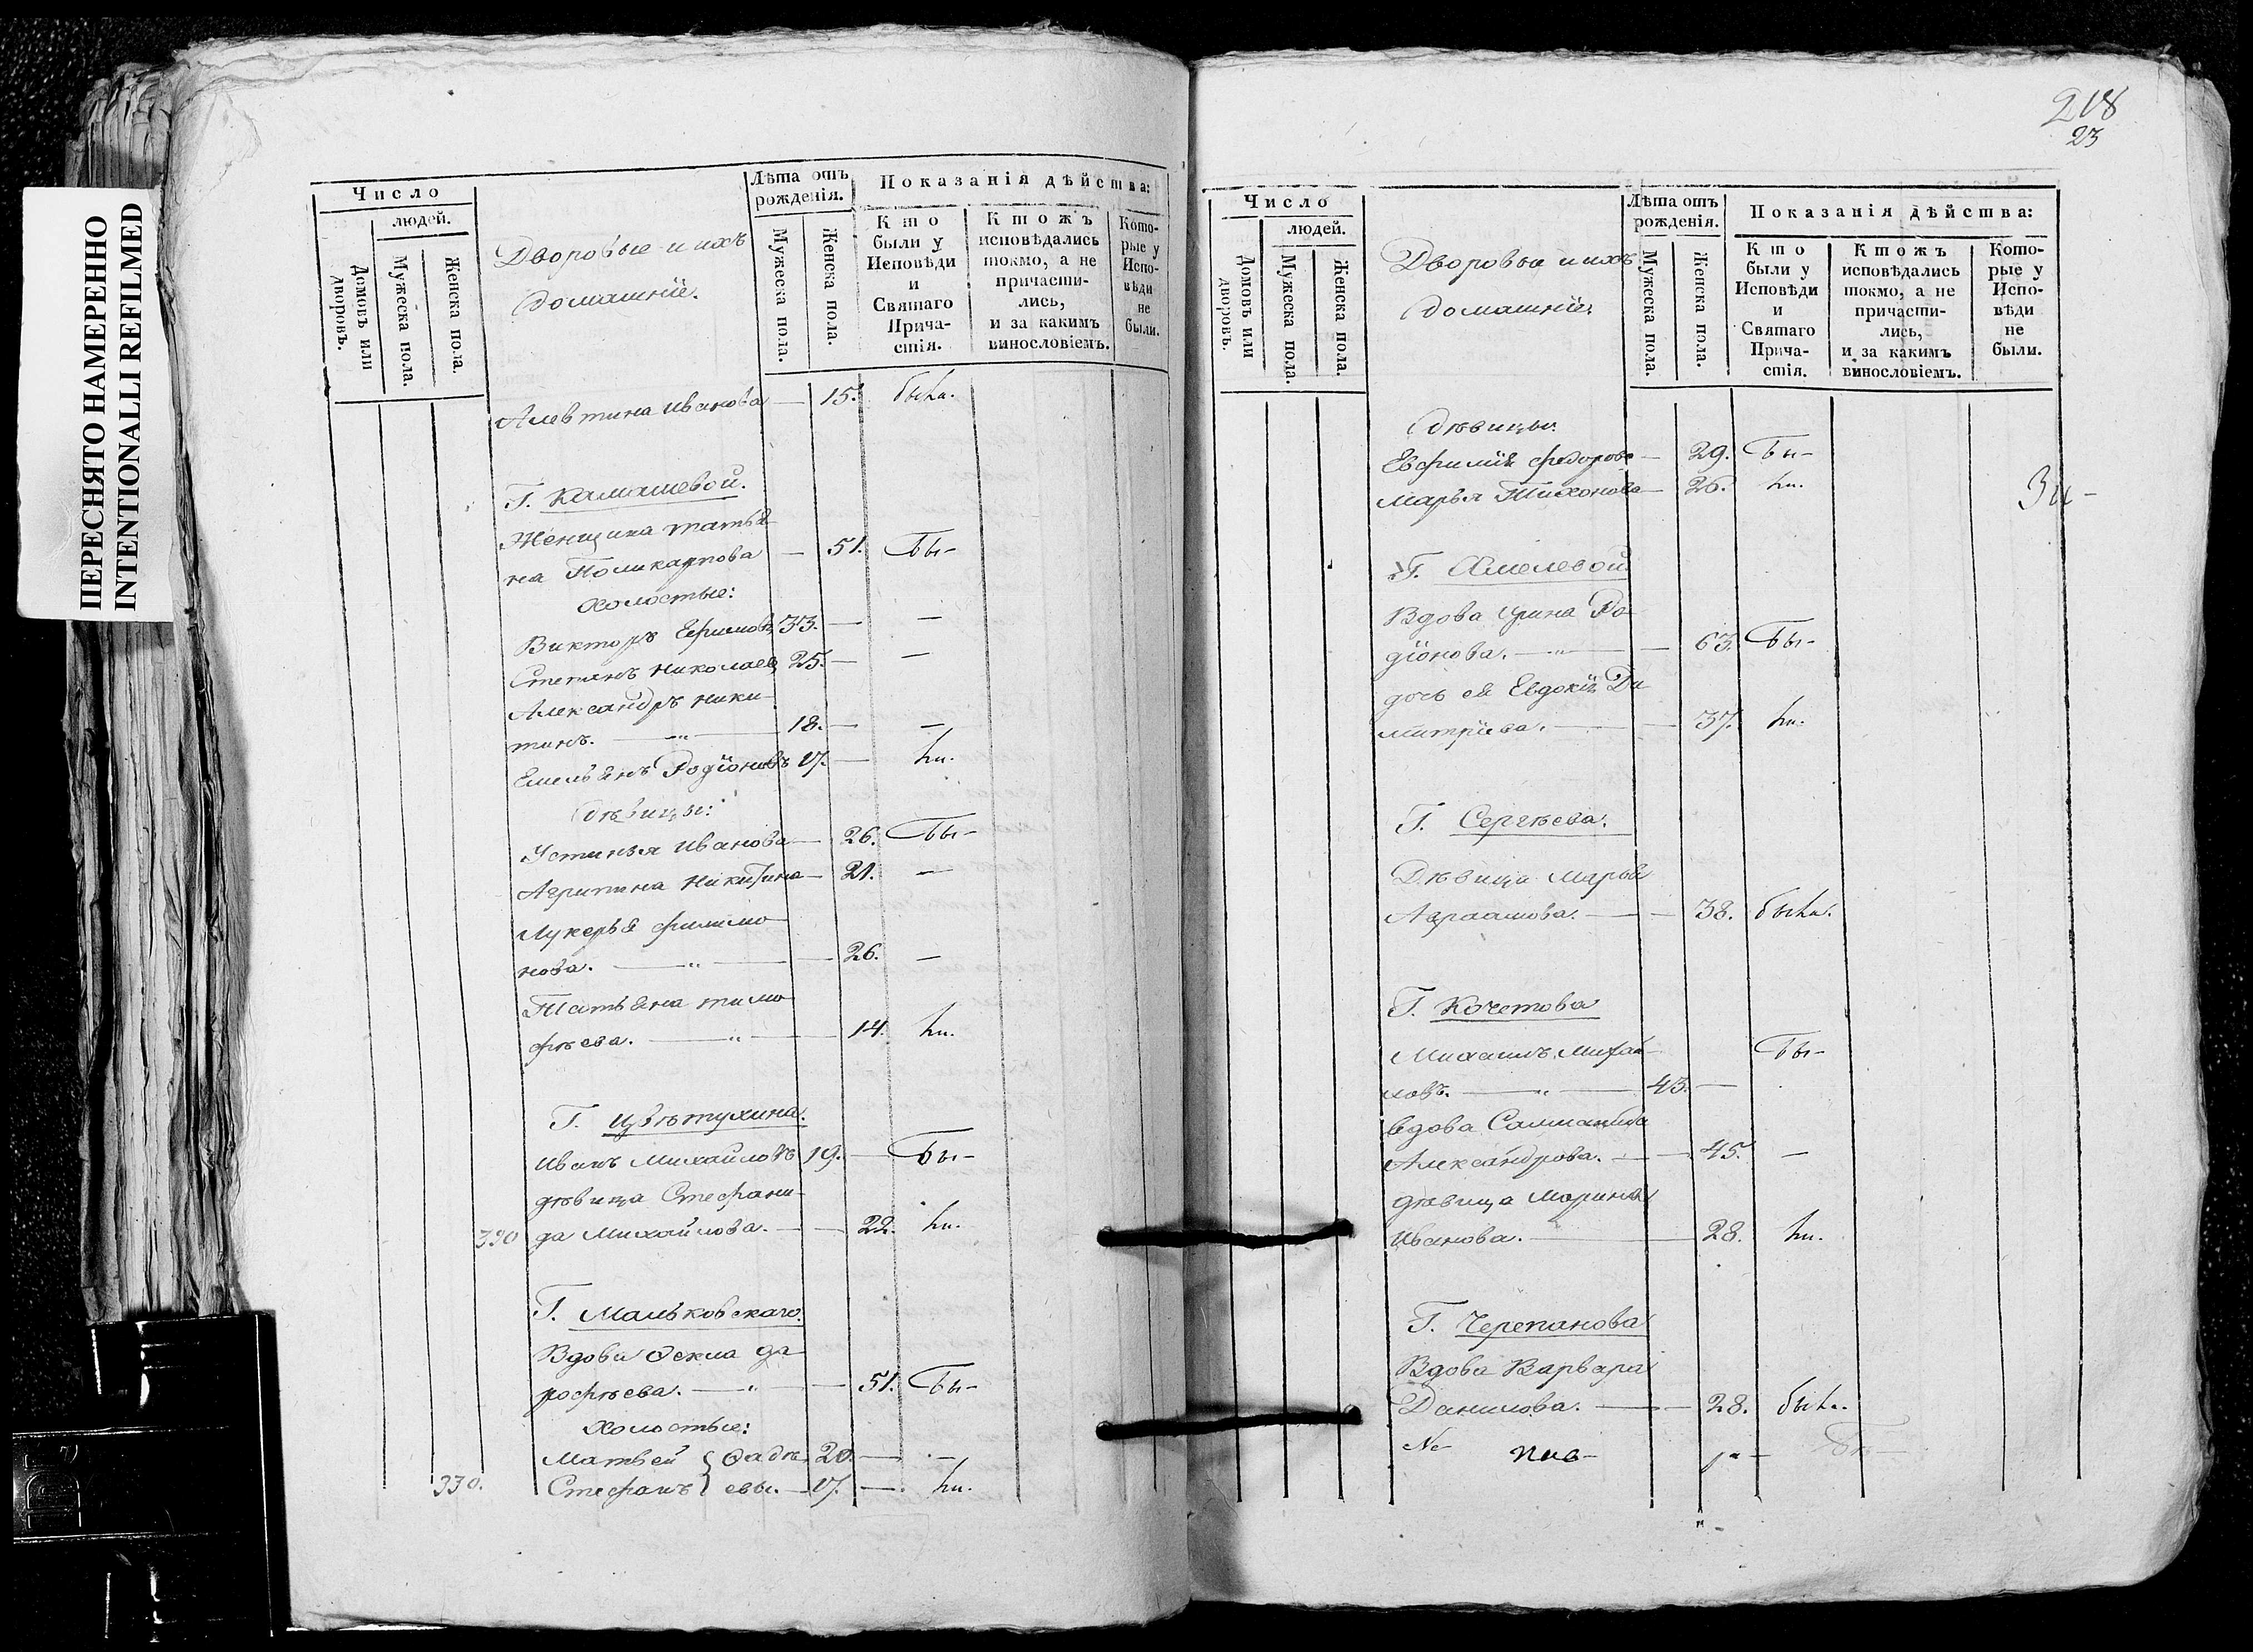 ПЕРЕСНЯТО НАМЕРЕННО
INTENTIONALLI REFILMED
Число
людей.
Домовъ или дворовъ.
Мужеска пола.
Женска пола.
Дворовые и ихъ
домашнїе.
Лѣта отъ
рожденія.
Мужеска пола.
Женска пола.
Показанія дѣйства:
Кто
были у
Исповѣди
и
Святаго
Прича-
стія.
Ктожъ
исповѣдались
токмо, а не
причасти-
лись,
и за какимъ
винословіемъ.
Кото-
рые у
Испо-
вѣди
не
были.
Алевтина Иванова — 15. была.
Г. Камашевой.
Женщина татья
на Поликарпова — 51. Бы-
Холостые:
Викторъ Ефимовъ 33. — —
Степанъ Николаев 25. — —
Александръ Ники-
тинъ. — " — 18. — —
Емельянъ Родїоновъ 17. — ли.
дѣвицы:
Устинья Иванова — 26. Бы-
Агрипина Никитина — 21. —
Лукерья филимо-
нова. — " — 26. —
Татьяна тимо
фѣева. — " — 14. ли.
Г. Цвѣтухина.
Иванъ Михайловъ 19. — Бы-
дѣвица Стефани-
390 да Михайлова. — 22. ли.
Г. Мальковскаго.
Вдова Ѳекла да
рофѣева. — " — 51. Бы-
Холостые:
Матвей } Ѳадѣ 20. — —
330. Стефанъ } евы. — 17. — ли.
218
23
Число
людей.
Домовъ или дворовъ.
Мужеска пола.
Женска пола.
Дворовые и ихъ
домашнїе
Лѣта отъ
рожденія.
Мужеска пола.
Женска пола.
Показанія дѣйства:
Кто
были у
Исповѣди
и
Святаго
Прича-
стія.
Ктожъ
исповѣдались
токмо, а не
причасти-
лись,
и за какимъ
винословіемъ.
Кото-
рые у
Испо-
вѣди
не
были.
дѣвицы:
Евфимїя федорова — 29. Бы-
Марья Тихонова — 26. ли.
Г. Хмелевой
Вдова Ирина Ро
дїонова. — " — 63. Бы-
дочь ея Евдокїя Ди
митрїева. — 37. ли.
Г. Сергѣева.
Дѣвица Марья
Авраамова. — 38. была.
Г. Кочетова
Михаилъ Михай Бы-
ловъ. — " — 43. —
вдова Саломанида
Александрова. — 45. —
дѣвица Марина
Иванова. — 28. ли.
Г. Черепанова
Вдова Варвара
Данилова. — 28. была.